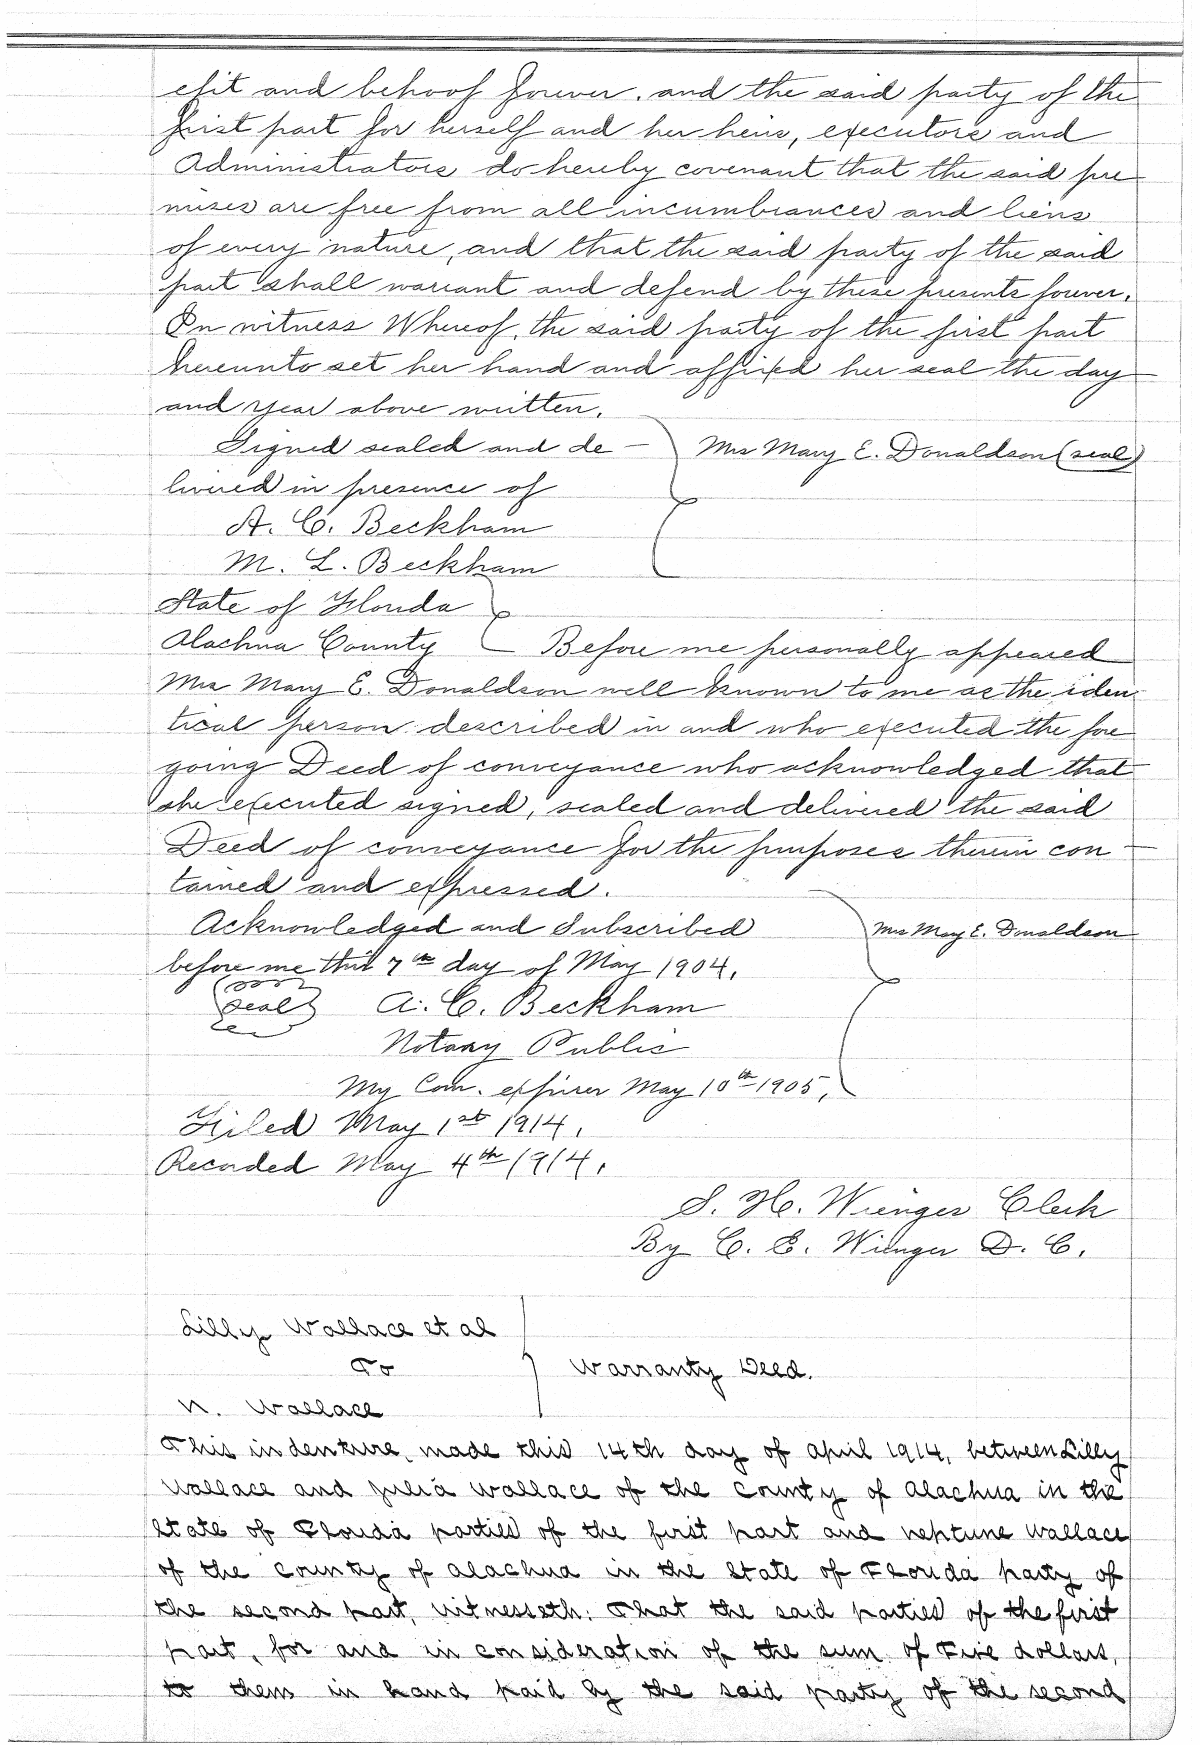 efit and behoof forever. and the said party of the
first part for herself and her heirs, executors and
Administrators do hereby covenant that the said pre
mises are free from all incumbrances and liens
of every nature, and that the said party of the said
part shall warrant and defend by these presents forever.
In witness Whereof, the said party of the first part
hereunto set her hand and affixed her seal the day
and year above written.
Signed sealed and de – Mrs Mary E. Donaldson (seal)
livered in presence of
A. C. Beckham
M. L. Beckham
State of Florida
Alachua County Before me personally appeared
Mrs Mary E. Donaldson well known to me as the iden
tical person described in and who executed the fore
going Deed of conveyance who acknowledged that
she executed signed, sealed and delivered the said
Deed of conveyance for the purposes therein con –
tained and expressed.
Acknowledged and Subscribed Mrs May E. Donaldson
before me this 7th day of May 1904.
seal A. C. Beckham
Notary Public
My Com. expires May 10th 1905,
Filed May 1st 1914.
Recorded May 4th 1914.
S. H. Wienges Clerk
By C. E. Wienges D. C.
Lilly Wallace et al
To Warranty Deed.
N. Wallace
This indenture, made this 14th day of april 1914, between Lilly
Wallace and Julia Wallace of the county of alachua in the
State of Florida parties of the first part and neptune wallace
of the county of alachua in the State of Florida party of
the second part, witnesseth: That the said parties of the first
part, for and in consideration of the sum of Five dollars,
to them in hand paid by the said party of the second